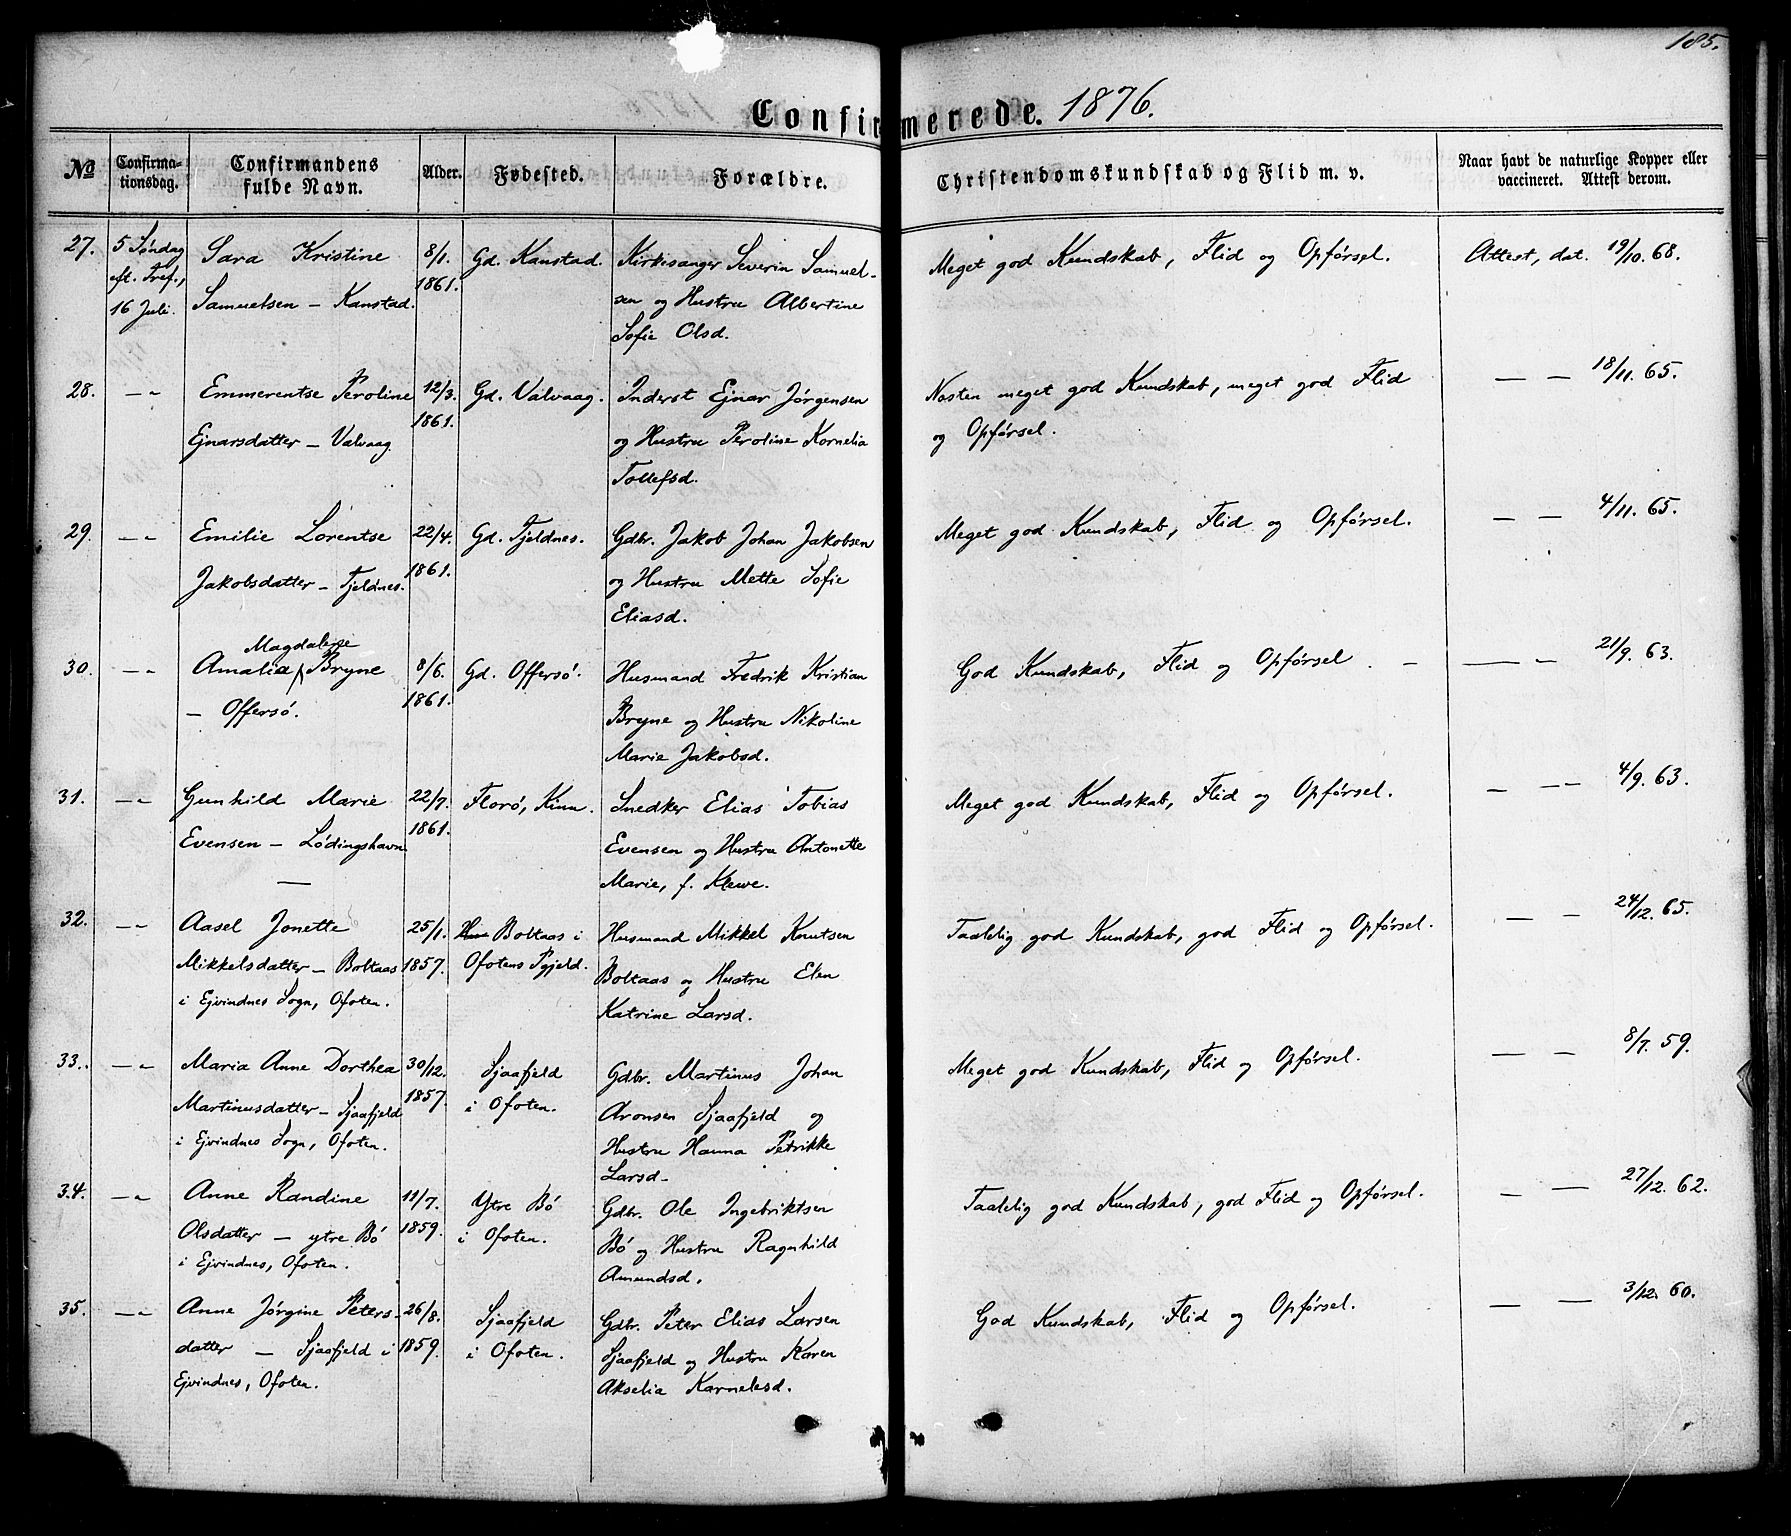 185.
Confirmerede. 1876.
No Confirma-tionsdag. Confirmandens fulde Navn. Alder. Fødested. Forældre. Christendomskundskab og Flid m. v. Naar havt de naturlige Kopper eller vaccineret. Attest derom.
27. 5 Søndag Sara Kristine 8/1. Gd. Kanstad. Kirkesanger Severin Samuel- Meget god Kundskab, Flid og Opførsel. Attest, dat. 19/10. 68.
eft. Tref., Samuelsen – Kanstad. 1861. sen og Hustru Albertine
16 Juli. Sofie Olsd.
28. — „ Emmerentse Peroline 12/3. Gd. Valvaag. Inderst Ejnar Jørgensen Næsten meget god Kundskab, meget god Flid — — 18/11. 65.
Ejnarsdatter – Valvaag. 1861. og Hustru Peroline Kornelia og Opførsel.
Tollefsd.
29. — „ Emilie Lorentse 22/4. Gd. Fjeldnes. Gdbr. Jakob Johan Jakobsen Meget god Kundskab, Flid og Opførsel. — — 4/11. 65.
Jakobsdatter – Fjeldnes. 1861. og Hustru Mette Sofie
Eliasd.
Magdalene
30. — „ Amalia Bryne 8/6. Gd. Offersø. Husmand Fredrik Kristian God Kundskab, Flid og Opførsel. — — — 21/9. 63.
– Offersø. 1861. Bryne og Hustru Nikoline
Marie Jakobsd.
31. — „ Gunhild Marie 22/7. Florø, Kinn. Snedker Elias Tobias Meget god Kundskab, Flid og Opførsel. — — 4/9. 63.
Evensen – Lødingshavn 1861. Evensen og Hustru Antonette
— Marie, f. Klewe.
32. — „ Aasel Jonette 25/1. Boltaas i Husmand Mikkel Knutsen Taalelig god Kundskab, god Flid og Opførsel. — — 24/12. 65.
Mikkelsdatter – Boltaas 1857. Ofotens Pgjeld. Boltaas og Hustru Elen
i Ejvindnes Sogn, Ofoten. Katrine Larsd.
33. — „ Maria Anne Dorthea 30/12. Sjaafjeld Gdbr. Martinus Johan Meget god Kundskab, Flid og Opførsel. — — 8/7. 59.
Martinusdatter – Sjaafjeld 1857. i Ofoten. Aronsen Sjaafjeld og
i Ejvindnes Sogn, Ofoten. Hustru Hanna Petrikke
Larsd.
34. — „ Anne Randine 11/7. Ytre Bø Gdbr. Ole Ingebriktsen Taalelig god Kundskab, god Flid og Opførsel. — — 27/12. 62.
Olsdatter – ytre Bø 1859. i Ofoten. Bø og Hustru Ragnhild
i Ejvindnes, Ofoten. Amundsd.
35. — „ Anne Jørgine Peters- 26/8. Sjaafjeld Gdbr. Peter Elias Larsen God Kundskab, Flid og Opførsel. — — 3/12. 60.
datter – Sjaafjeld i 1859. i Ofoten. Sjaafjeld og Hustru Karen
Ejvindnes, Ofoten. Akselia Karnelesd.